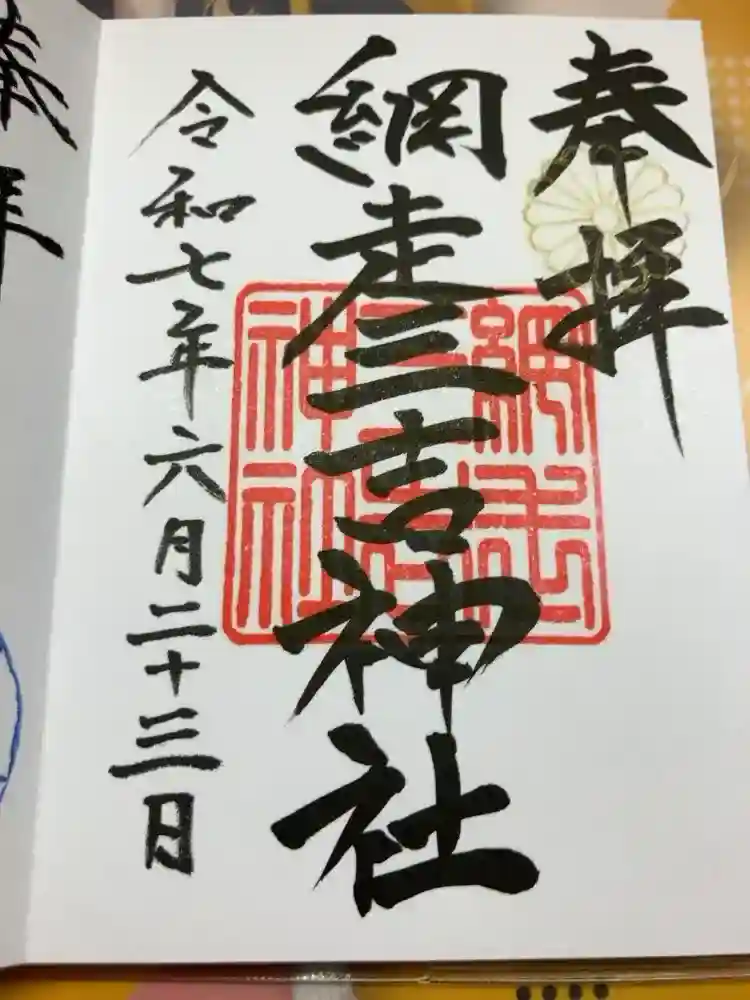 奉拝
網走三吉神社
網走三吉神社
令和七年六月二十三日
奉拝